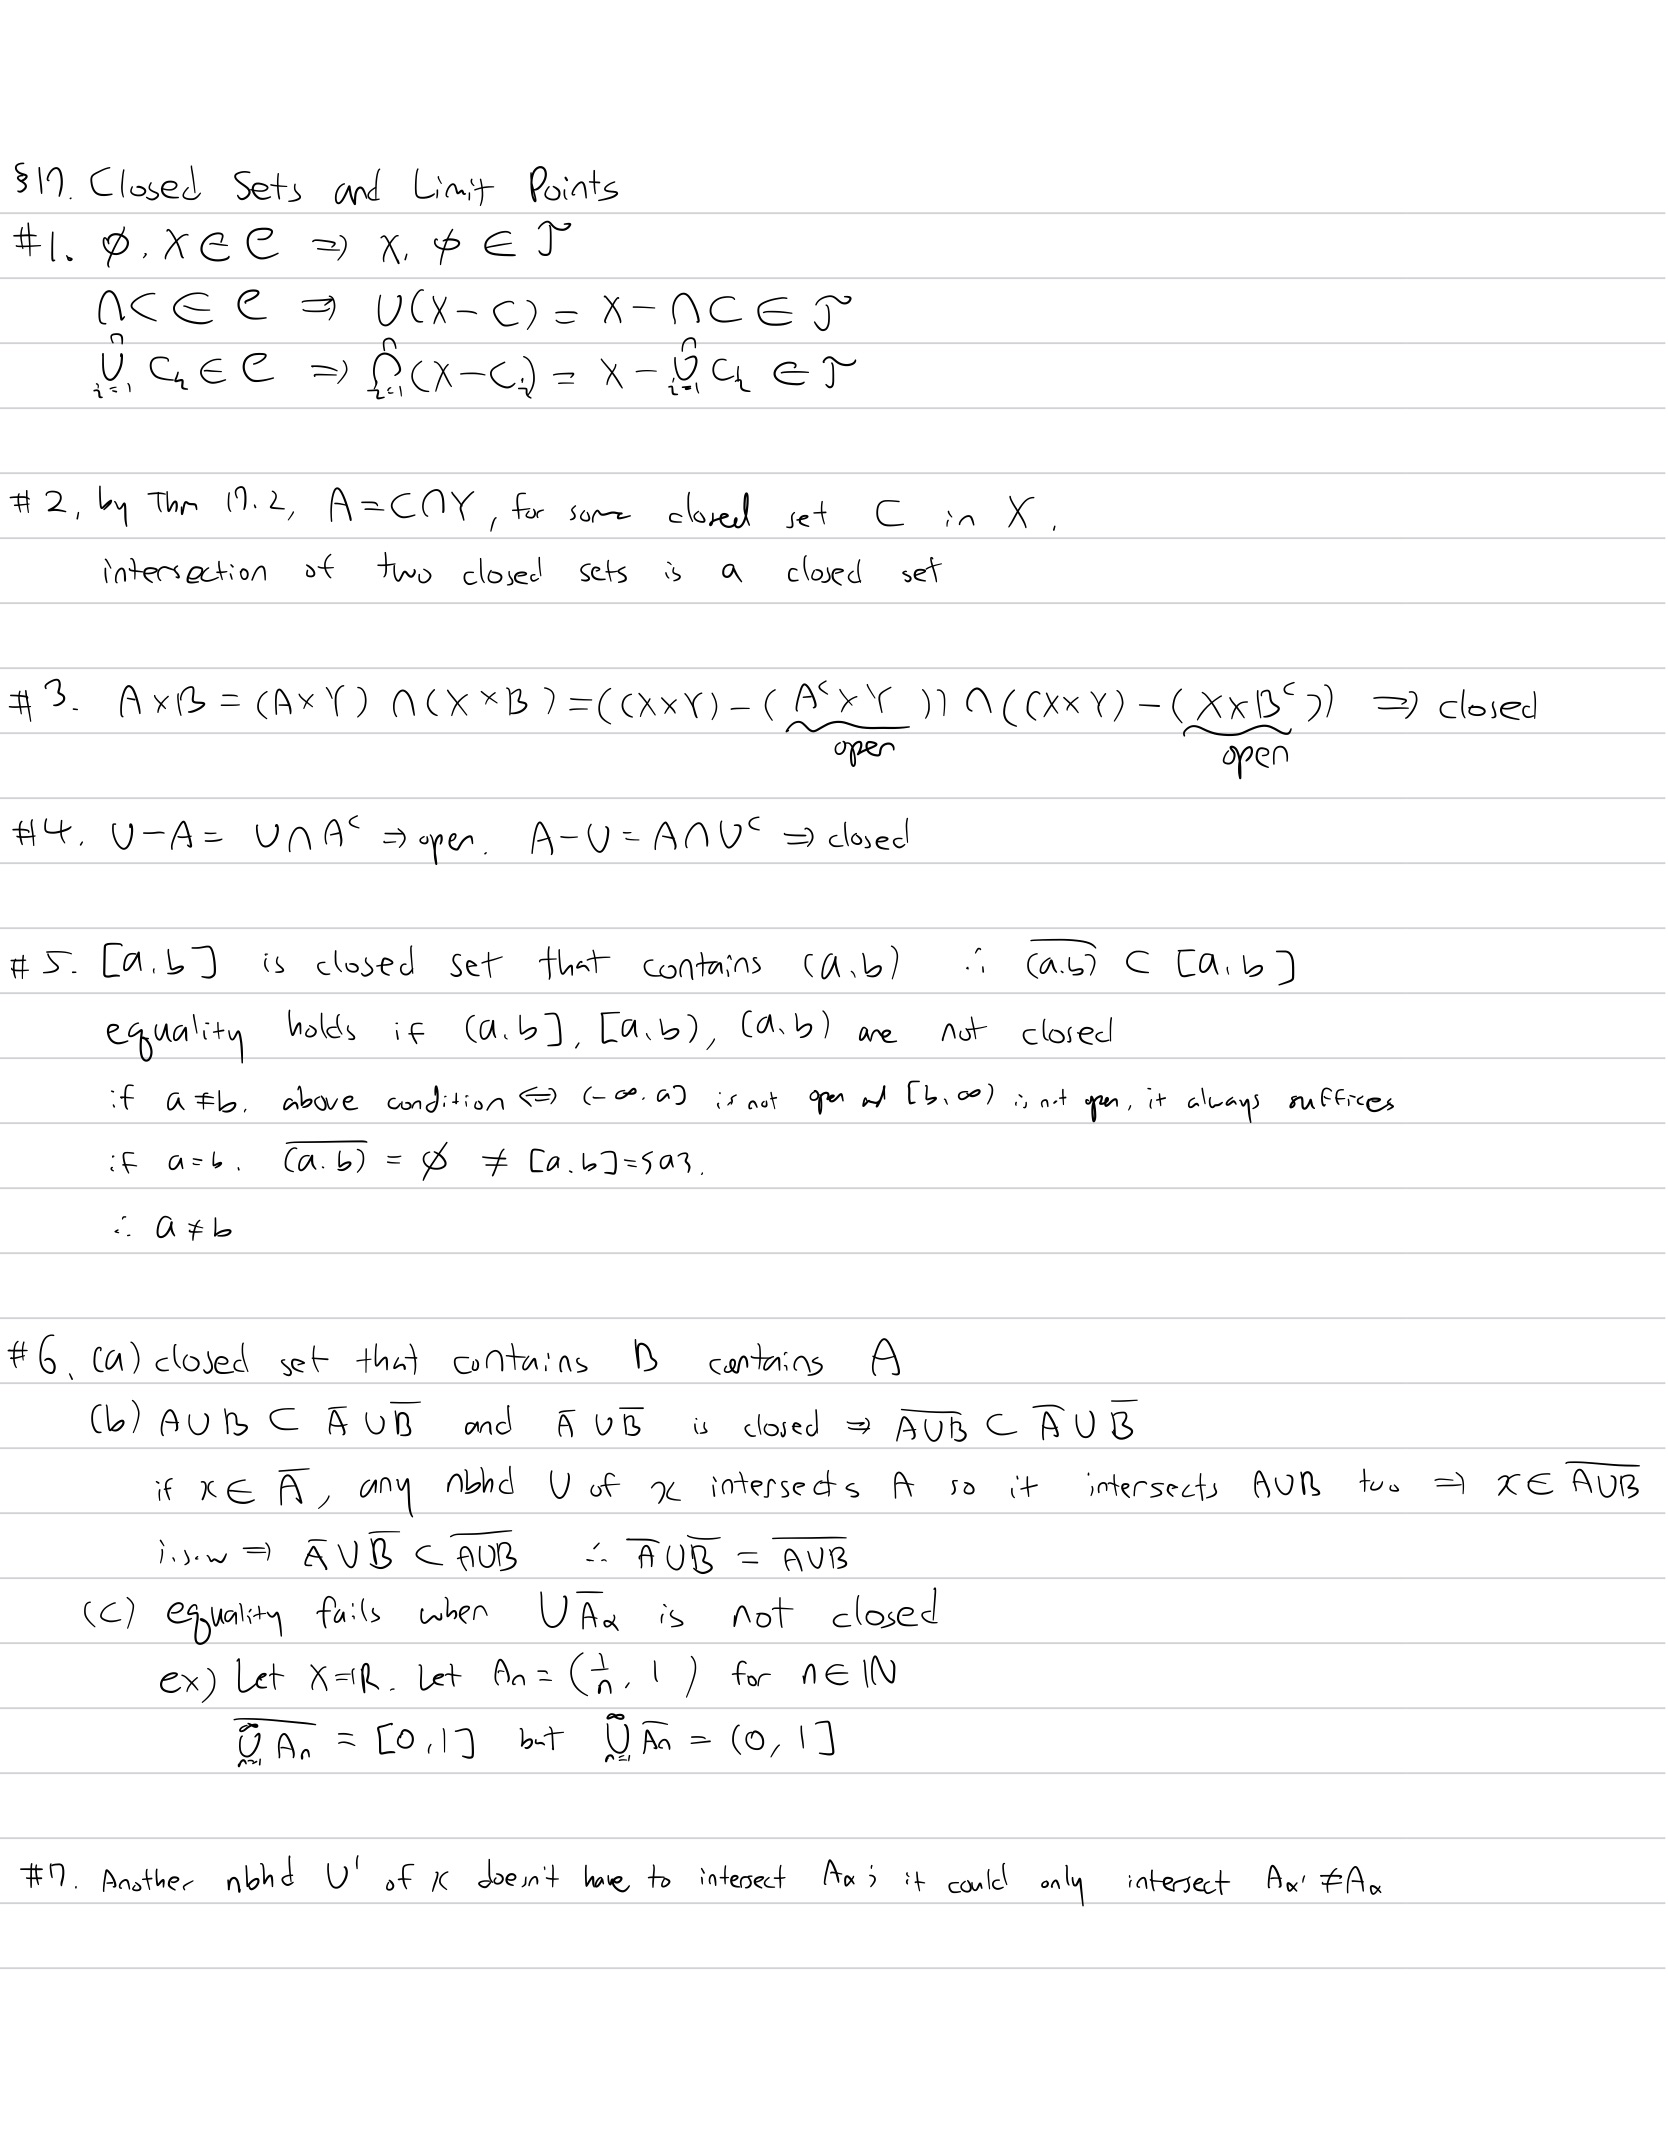 §17. Closed Sets and Limit Points
#1. ∅, X ∈ C ⇒ X, ∅ ∈ T
∩C ∈ C ⇒ ∪(X-C) = X-∩C ∈ T
⋃ⁿᵢ₌₁ Cᵢ ∈ C ⇒ ⋂ⁿᵢ₌₁(X-Cᵢ) = X-⋃ⁿᵢ₌₁ Cᵢ ∈ T
#2, by Thm 17.2, A=C∩Y, for some closed set C in X.
intersection of two closed sets is a closed set
#3. A×B = (A×Y) ∩ (X×B) = ((X×Y)-(Aᶜ×Y)) ∩ ((X×Y)-(X×Bᶜ)) ⇒ closed
open open
#4. U-A = U∩Aᶜ ⇒ open. A-U = A∩Uᶜ ⇒ closed
#5. [a,b] is closed set that contains (a,b) ∴ \overline{(a,b)} ⊂ [a,b]
equality holds if (a,b], [a,b), (a,b) are not closed
if a≠b, above condition ⇔ (-∞,a] is not open and [b,∞) is not open, it always suffices
if a=b, \overline{(a,b)} = ∅ ≠ [a,b]={a}.
∴ a≠b
#6. (a) closed set that contains B contains A
(b) A∪B ⊂ \overline{A}∪\overline{B} and \overline{A}∪\overline{B} is closed ⇒ \overline{A∪B} ⊂ \overline{A}∪\overline{B}
if x∈\overline{A}, any nbhd U of x intersects A so it intersects A∪B too ⇒ x∈\overline{A∪B}
i.s.w ⇒ \overline{A}∪\overline{B} ⊂ \overline{A∪B} ∴ \overline{A}∪\overline{B} = \overline{A∪B}
(c) equality fails when ∪\overline{A}α is not closed
ex) Let X=ℝ. Let Aₙ = (1/n, 1) for n∈ℕ
\overline{⋃^∞ₙ₌₁ Aₙ} = [0,1] but ⋃^∞ₙ₌₁ \overline{Aₙ} = (0,1]
#7. Another nbhd U' of x doesn't have to intersect Aα; it could only intersect Aα' ≠ Aα